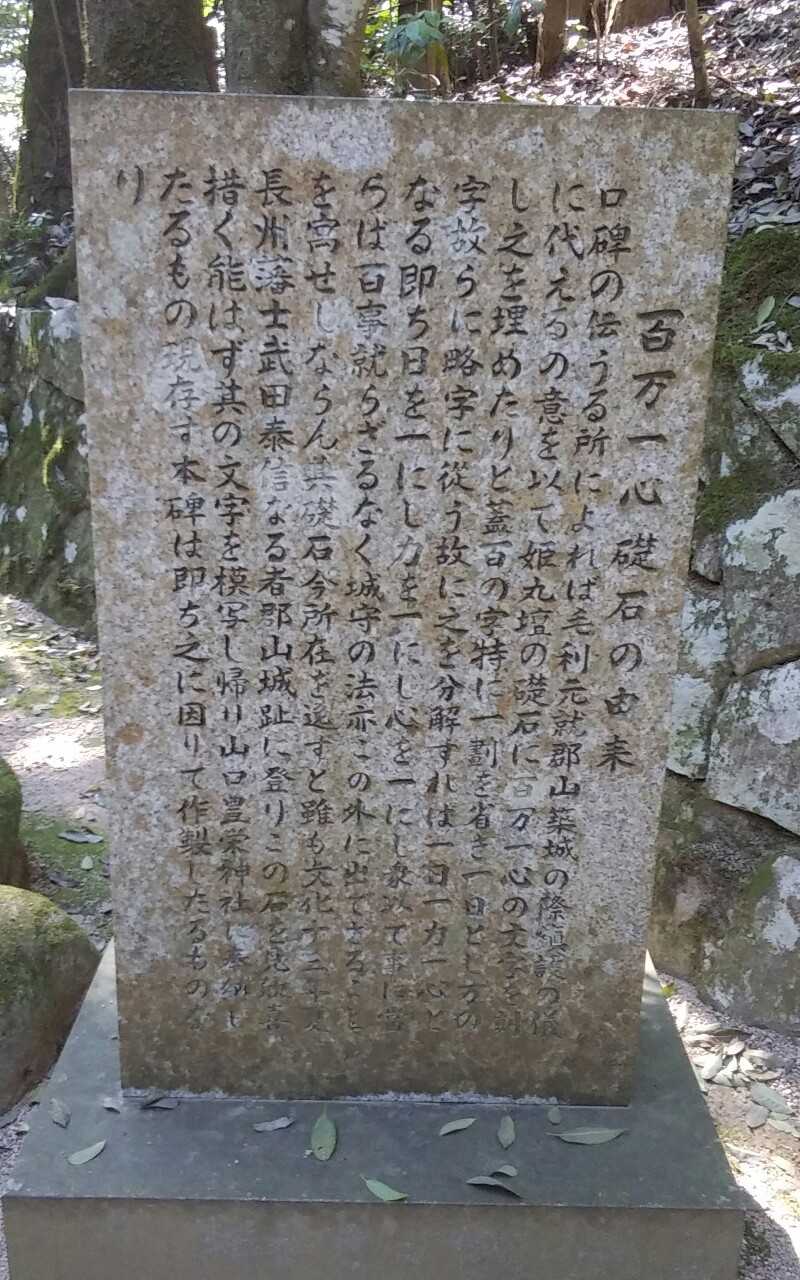 百万一心礎石の由来
口碑の伝うる所によれば毛利元就郡山築城の際鎮設の儀
に代えるの意を以て姫丸壇の礎石に百万一心の文字を刻
し之を埋めたりと蓋百の字特に一劃を省き一日とし万の
字故らに略字に従う故に之を分解すれば一日一力一心と
なる即ち日を一にし力を一にし心を一にし衆以て事に当
らは百事就らざるなく城守の法亦この外に出てざること
を寓せしならん其礎石今所在を逸すと雖も文化十三年夏
長州藩士武田泰信なる者郡山城趾に登りこの石を見
措く能はず其の文字を模写し帰り山口豊栄神社に奉納し
たるもの現存す本碑は即ち之に因りて作製したるものな
り